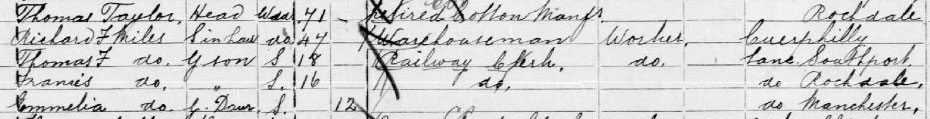 Thomas Taylor, Head Wdr 71 retired Cotton Manfr. Rochdale
Richard F Miles Sin Law do. 47 Warehouseman Worker, Caerphilly
Thomas F do. G son S. 18 Railway Clerk, do. Lanc Southport,
Francis do. " S. 16 do, do Rochdale,
Emmelia do. G. Daur S. 12 do Manchester,